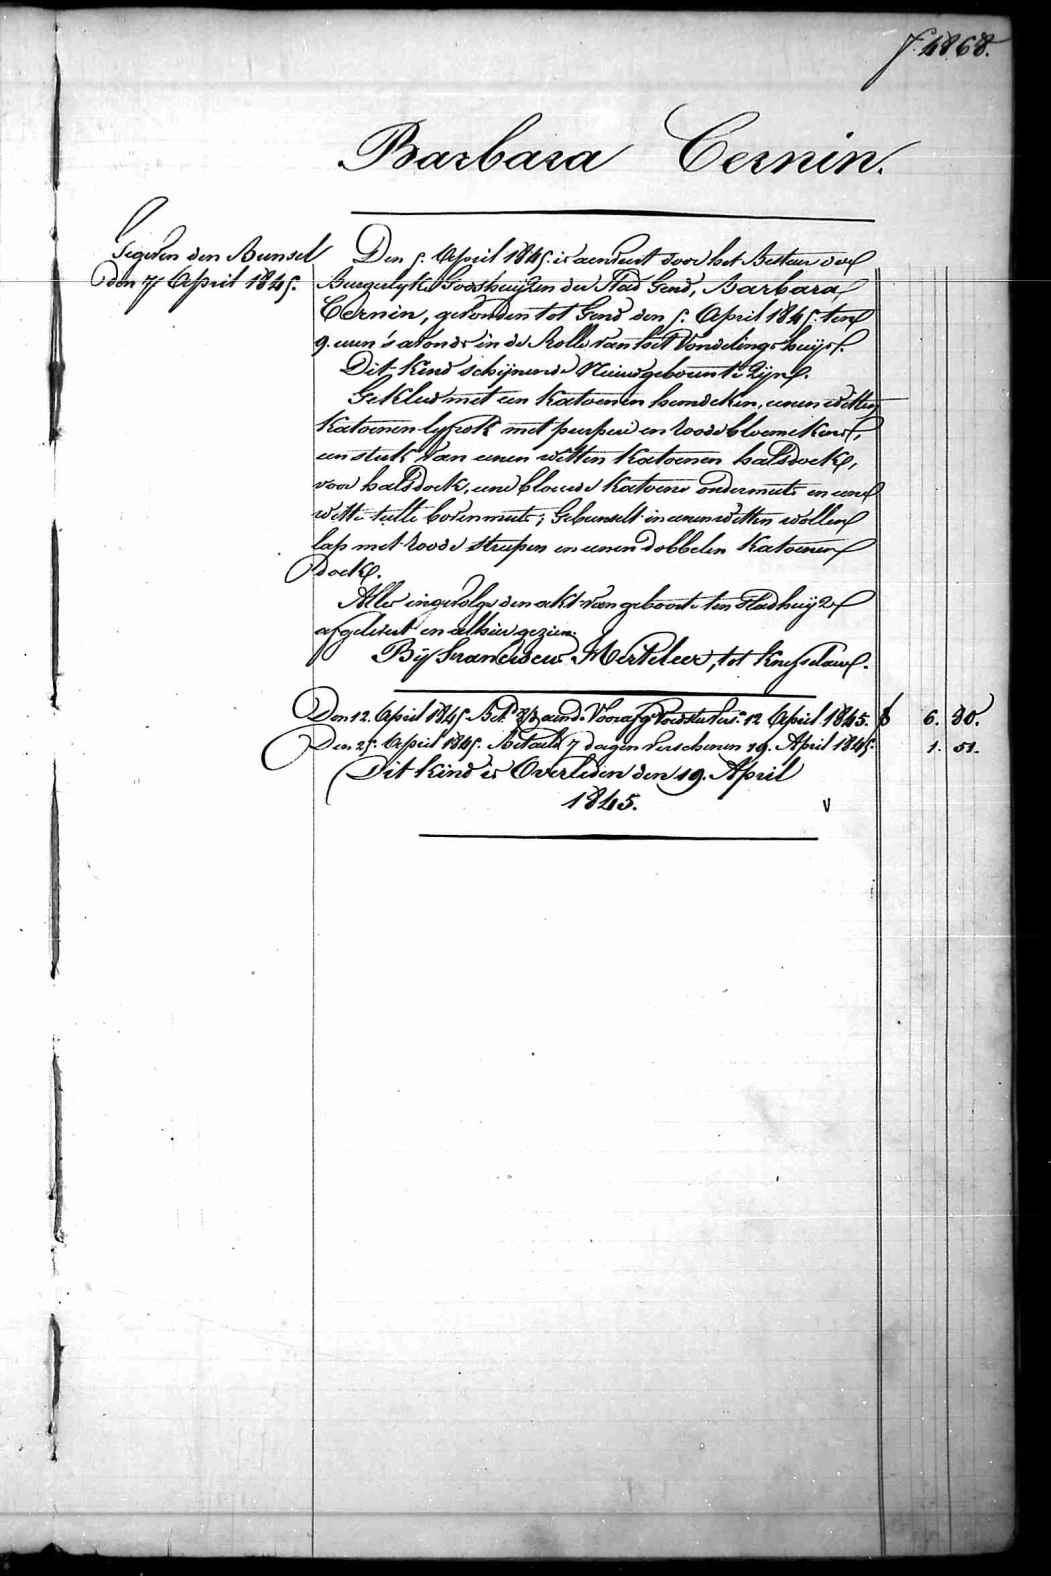 f. 4868.
Barbara Cernin.
Gegeven den Bunsel
den 7 April 1845.
Den 5. April 1845. is aenveert door het Bestier der
Burgerlyke Godshuijzen der Stad Gend, Barbara
Cernin, gevonden tot Gend den 5. April 1845. ten
9. uren 's avonds in de Rolle van het Vondelingshuijs.
Dit kind schijnende Nieuwgeboren te Zijn.
Gekleed met een katoenen hemdeken, eenen witten
katoenen lyfrok met purpere en roode bloemekens,
een stuk van eenen witten katoenen halsdoek,
voor halsdoek, eene blauwe katoene ondermuts en eene
witte tulle bovenmuts; Gebunselt in eenen witten wollen
lap met roode strepen en eenen dobbelen katoenen
doek.
Alles ingevolge den akt van geboorte ten Stadhuijze
afgelevert en alhier gezien.
Bij Franciscus Merteleer, tot Knesselaere.
Den 12. April 1845. 12 April 1845. 6. 30.
Den 25. April 1845. Betaeld 7 dagen verschenen 19. April 1845. 1. 51.
Dit kind is Overleden den 19. April
1845.